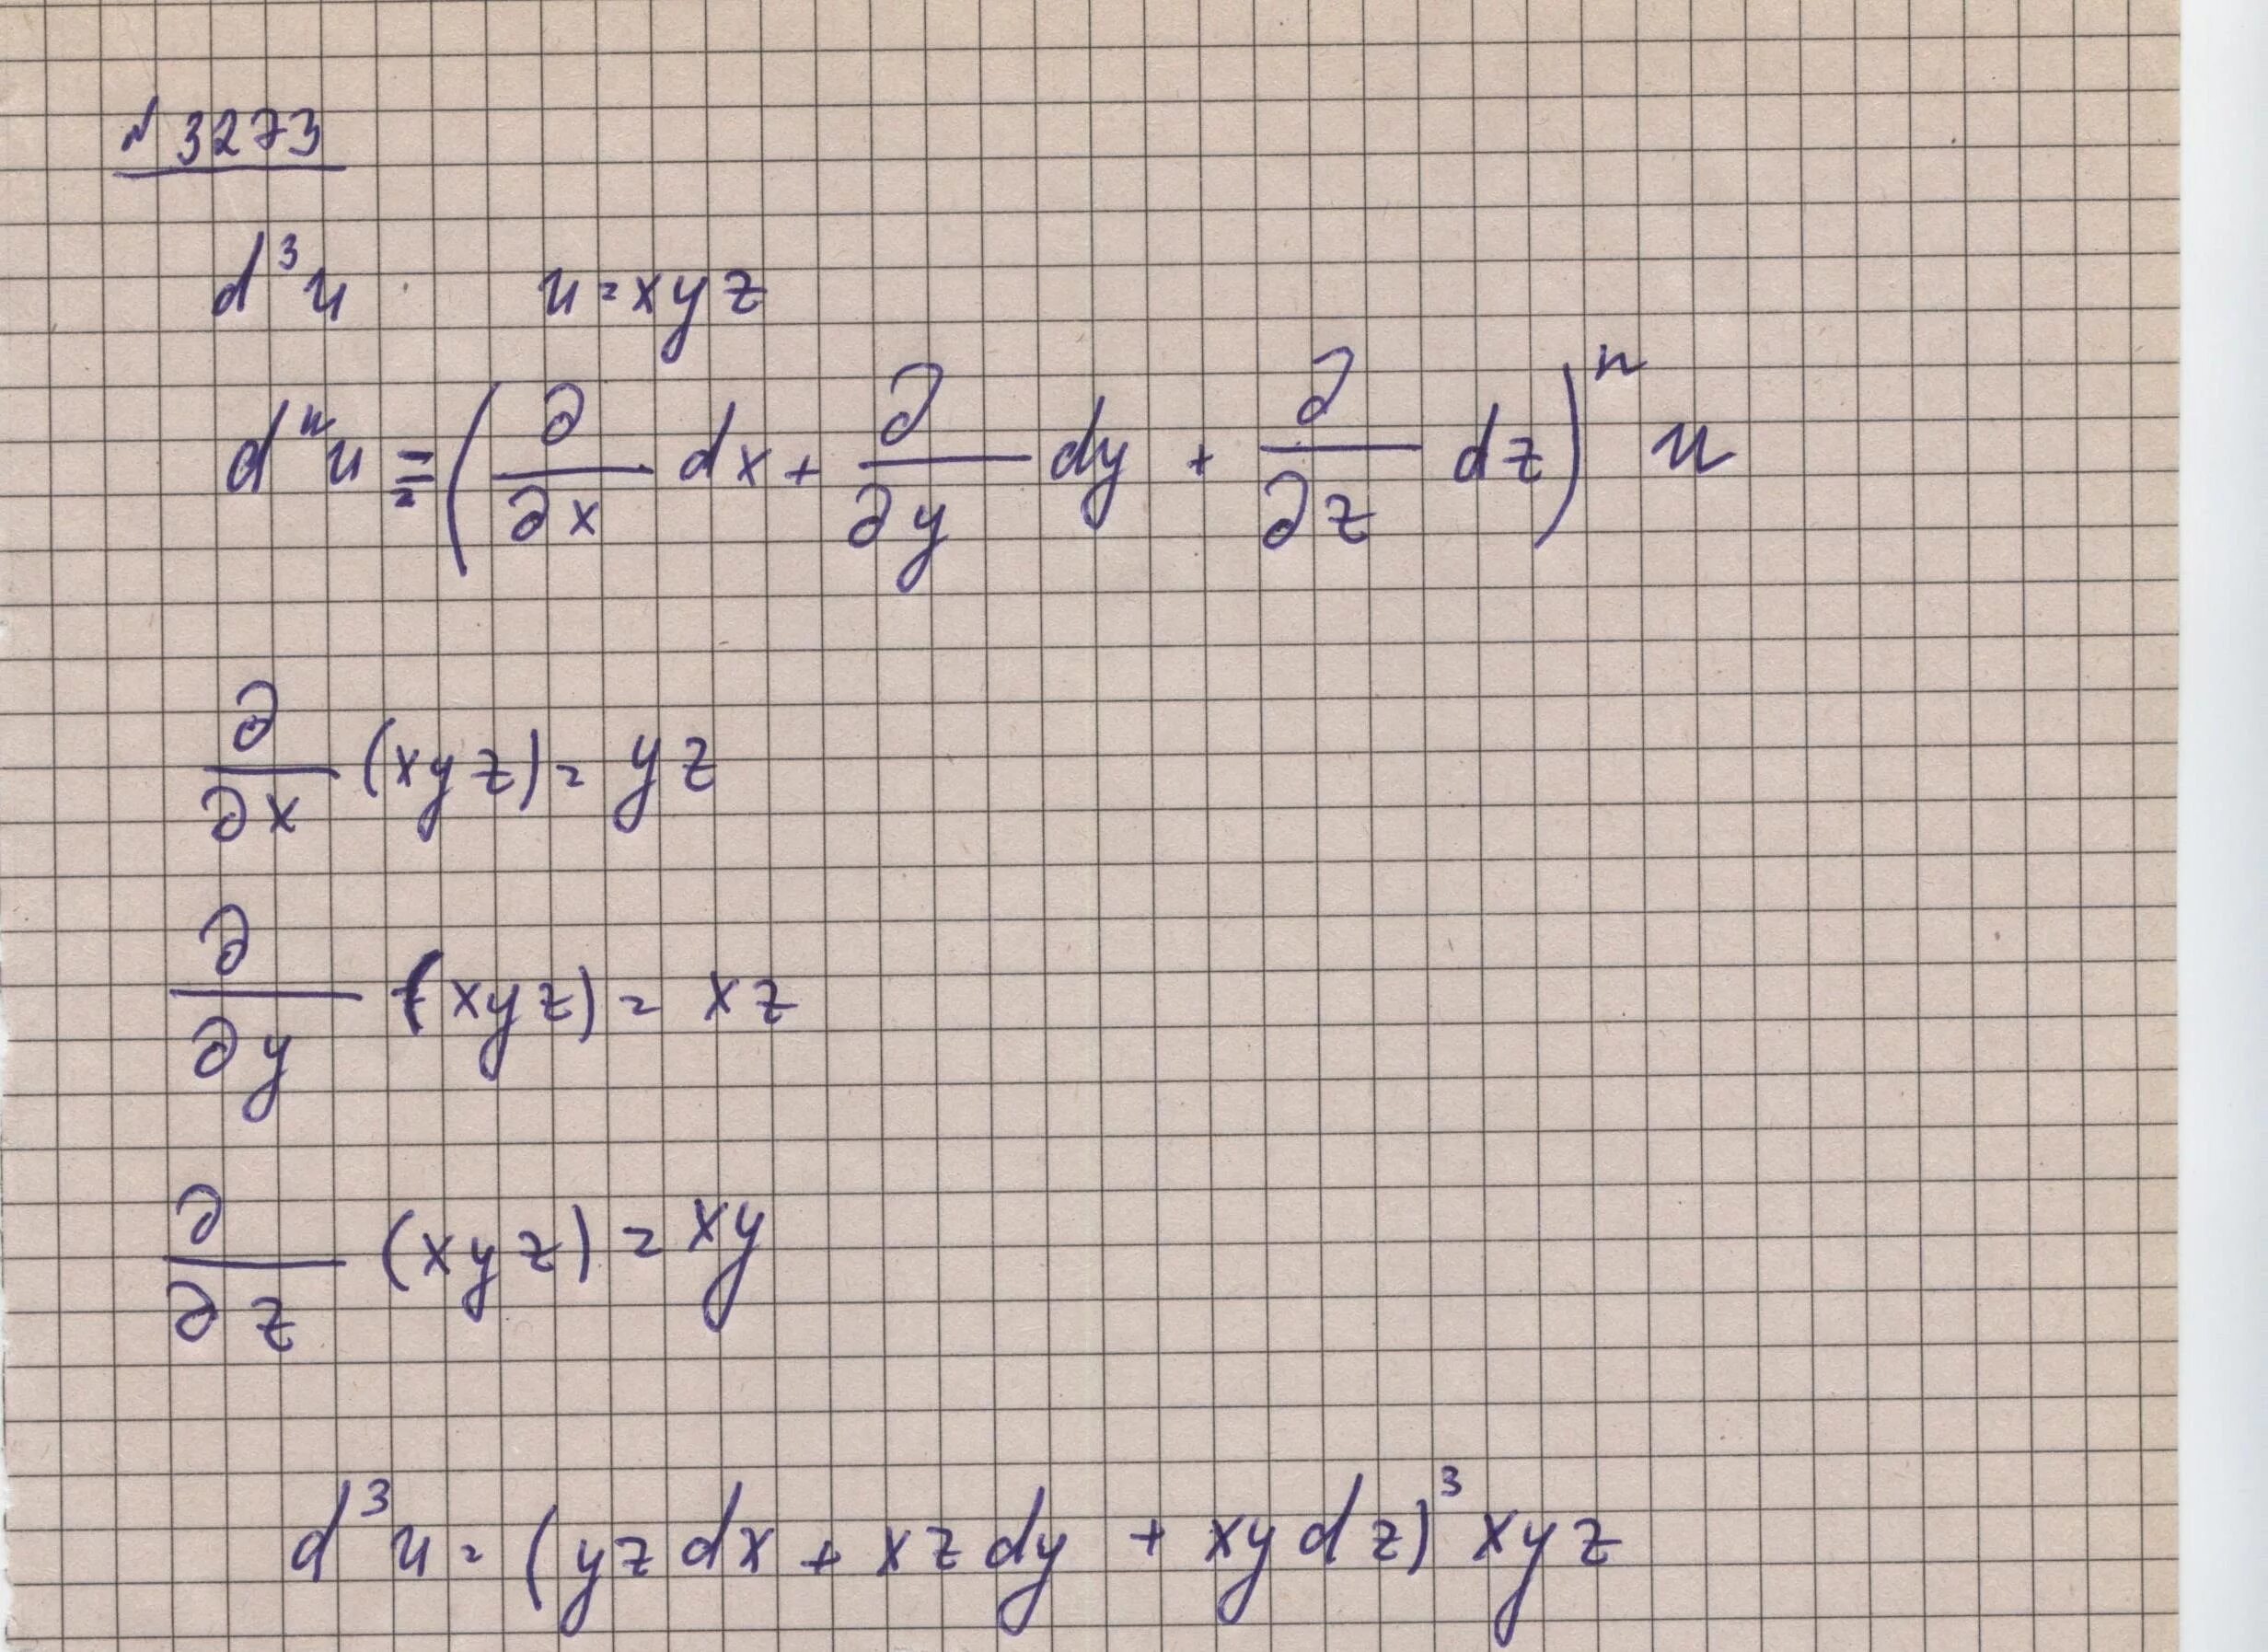 № 3273
d³u u = xyz
dⁿu = (∂/∂x dx + ∂/∂y dy + ∂/∂z dz)ⁿ u
∂/∂x (xyz) = yz
∂/∂y (xyz) = xz
∂/∂z (xyz) = xy
d³u = (yz dx + xz dy + xy dz)³ xyz